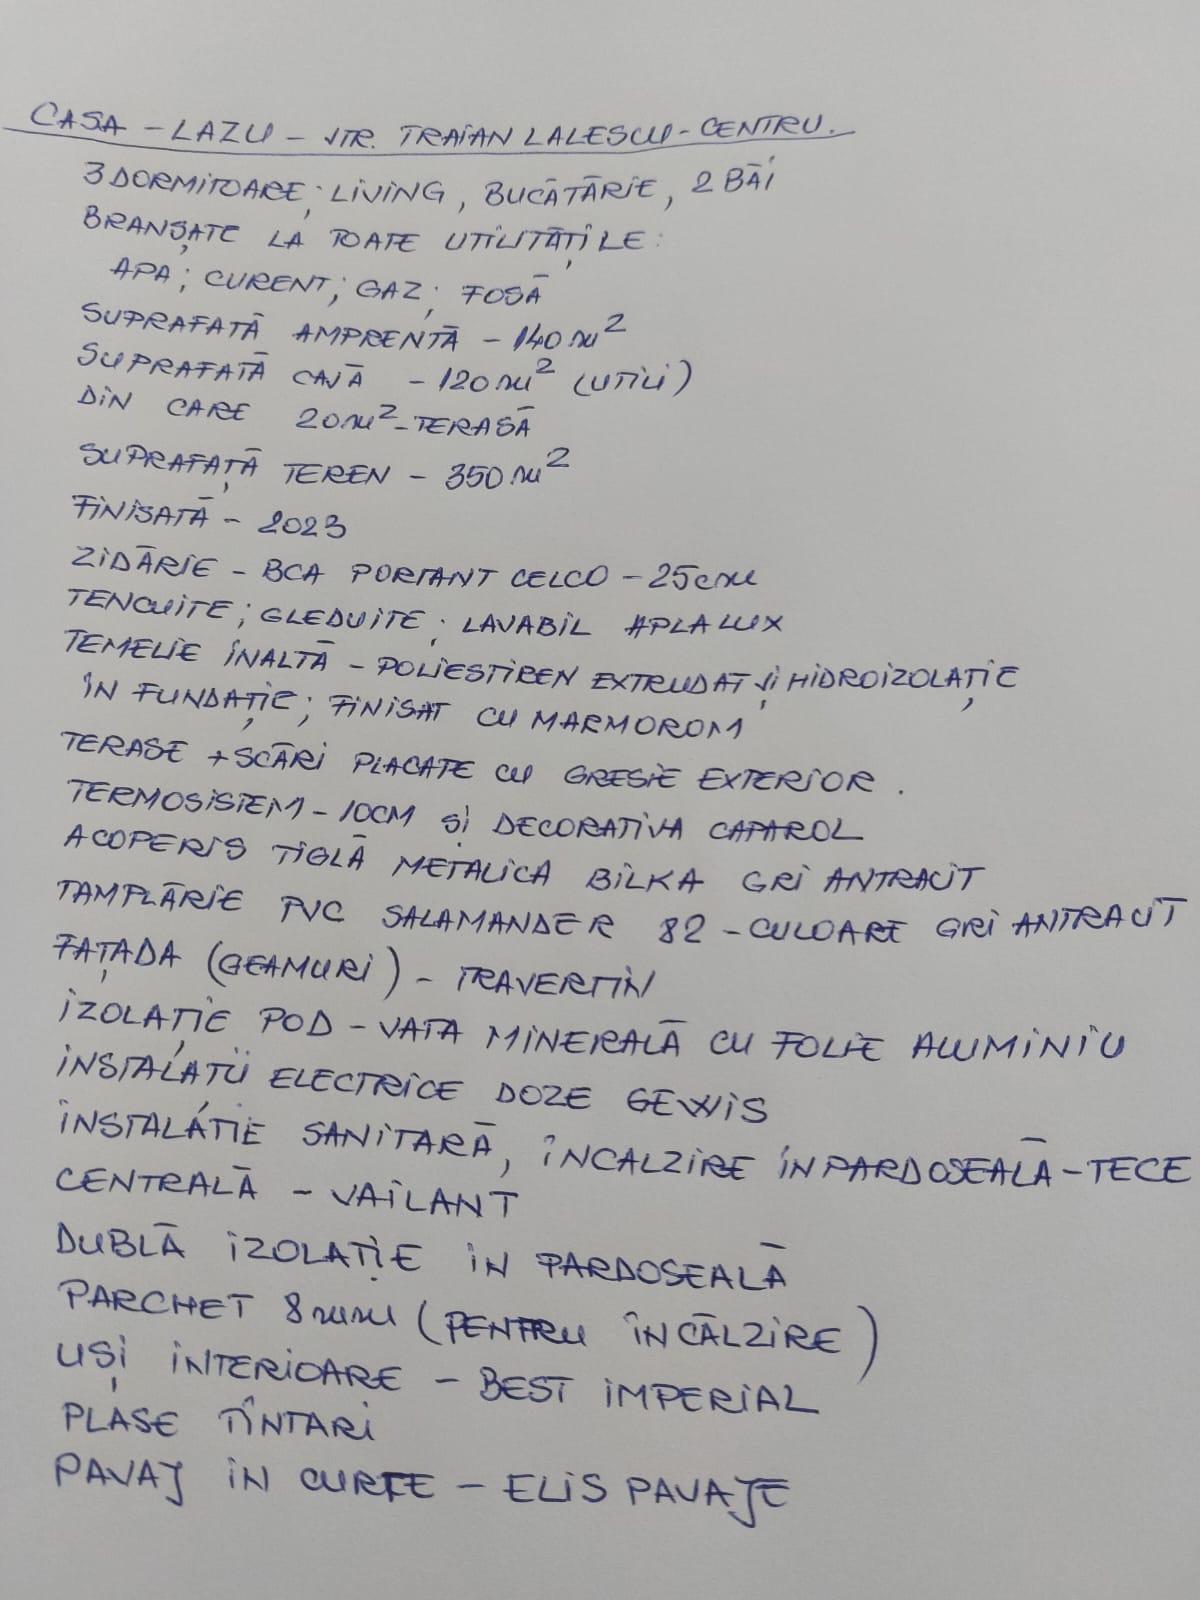 CASA - LAZU - STR. TRAIAN LALESCU - CENTRU.
3 DORMITOARE; LIVING, BUCĂTĂRIE, 2 BĂI
BRANȘATE LA TOATE UTILITĂȚILE:
APA; CURENT; GAZ; FOSĂ
SUPRAFATĂ AMPRENTĂ - 140 m²
SUPRAFATĂ CASĂ - 120 m² (UTILI)
DIN CARE 20 m² - TERASĂ
SUPRAFAȚĂ TEREN - 350 m²
FINISATĂ - 2023
ZIDĂRIE - BCA PORTANT CELCO - 25 cm
TENCUITE; GLEDUITE; LAVABIL APLA LUX
TEMELIE ÎNALTĂ - POLIESTIREN EXTRUDAT ȘI HIDROIZOLAȚIE
ÎN FUNDAȚIE; FINISAT CU MARMOROM
TERASE + SCĂRI PLACATE CU GRESIE EXTERIOR.
TERMOSISTEM - 10CM ȘI DECORATIVA CAPAROL
ACOPERIS TIGLĂ METALICA BILKA GRI ANTRACIT
TAMPLĂRIE PVC SALAMANDER 82 - CULOARE GRI ANTRACIT
FAȚADA (GEAMURI) - TRAVERTIN
IZOLAȚIE POD - VATA MINERALĂ CU FOLIE ALUMINIU
INSTALAȚII ELECTRICE DOZE GEWIS
INSTALATIE SANITARĂ, ÎNCALZIRE ÎN PARDOSEALĂ - TECE
CENTRALĂ - VAILANT
DUBLĂ IZOLAȚIE IN PARDOSEALĂ
PARCHET 8 mm (PENTRU ÎNCĂLZIRE)
UȘI INTERIOARE - BEST IMPERIAL
PLASE ȚÎNTARI
PAVAJ IN CURTE - ELIS PAVAJE